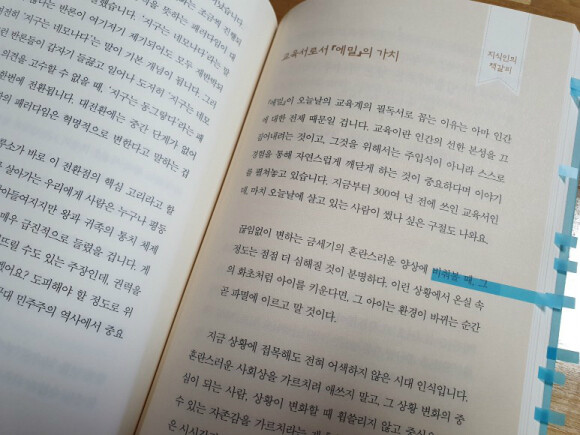 않다는 반론이 여기저기 제기되어도 모두
전히 '지구는 네모나다'라는 말이 기본 개념이 됩니다. 그러
반론들이 갑자기 들끓고 일어나 도저히 '지구는 네모
의견을 고수할 수 없을 때, '지구는 동그랗다'라는 패
한번에 전환됩니다. 대전환에는 중간 단계가 없어
의 패러다임은 혁명적으로 변한다고 말하는 겁
루소가 바로 이 전환점의 핵심 고리라고 할
살아가는 우리에게 사람은 누구나 평등
아들여지지만 왕과 귀족의 통치 체제
매우 급진적으로 들렸을 겁니다. 게
뜨릴 수도 있는 주장인데, 권력을
겠어요? 도피해야 할 정도로 위
근대 민주주의 역사에서 중요
지식인의
책갈피
교육서로서 『에밀』의 가치
『에밀』이 오늘날의 교육계의 필독서로 꼽는 이유는 아마 인간
에 대한 전제 때문일 겁니다. 교육이란 인간의 선한 본성을 끄
집어내려는 것이고, 그것을 위해서는 주입식이 아니라 스스로
경험을 통해 자연스럽게 깨닫게 하는 것이 중요하다며 이야기
를 펼쳐놓고 있습니다. 지금부터 300여 년 전에 쓰인 교육서인
데, 마치 오늘날에 살고 있는 사람이 썼나 싶은 구절도 나와요.
끊임없이 변하는 금세기의 혼란스러운 양상에 비춰볼 때, 그
정도는 점점 더 심해질 것이 분명하다. 이런 상황에서 온실 속
의 화초처럼 아이를 키운다면, 그 아이는 환경이 바뀌는 순간
곧 파멸에 이르고 말 것이다.
지금 상황에 접목해도 전혀 어색하지 않은 시대 인식입니다.
혼란스러운 사회상을 가르치려 애쓰지 말고, 그 상황 변화의 중
심이 되는 사람, 상황이 변화할 때 휩쓸리지 않고 중심을
수 있는 자존감을 가르치라는